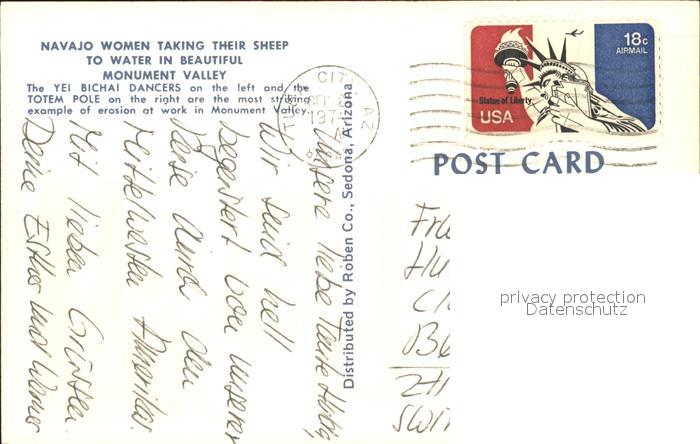 NAVAJO WOMEN TAKING THEIR SHEEP
TO WATER IN BEAUTIFUL
MONUMENT VALLEY
The YEI BICHAI DANCERS on the left and the
TOTEM POLE on the right are the most striking
example of erosion at work in Monument Valley.
CIT AZ
SEP
197
18c
AIRMAIL
Statue of Liberty
USA
POST CARD
Distributed by Roben Co., Sedona, Arizona
Unsere liebe Tante
Wir sind hell
begeistert von unserer
Reise durch den
Mittelwesten Amerikas.
Mit lieben Grüssen
Deine Esther und Werner
Fra
Hu
Be
ZH
SWIT
privacy protection
Datenschutz